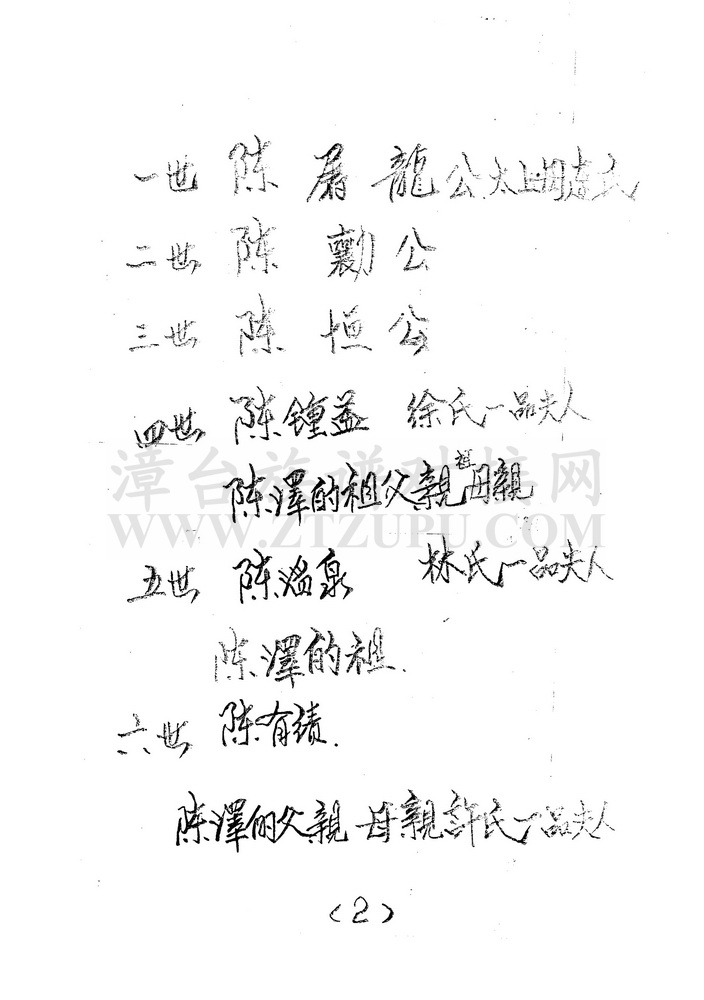 一世 陈 龍公 太
二世 陈 勷公
三世 陈 恒公
四世 陈鍾益 徐氏一品夫人
陈澤的祖父親 祖母親
漳台族谱对接网
WWW.ZTZUPU.COM
五世 陈温泉 林氏一品夫人
陈澤的祖.
六世 陈有績.
陈澤的父親 母親許氏一品夫人
(2)